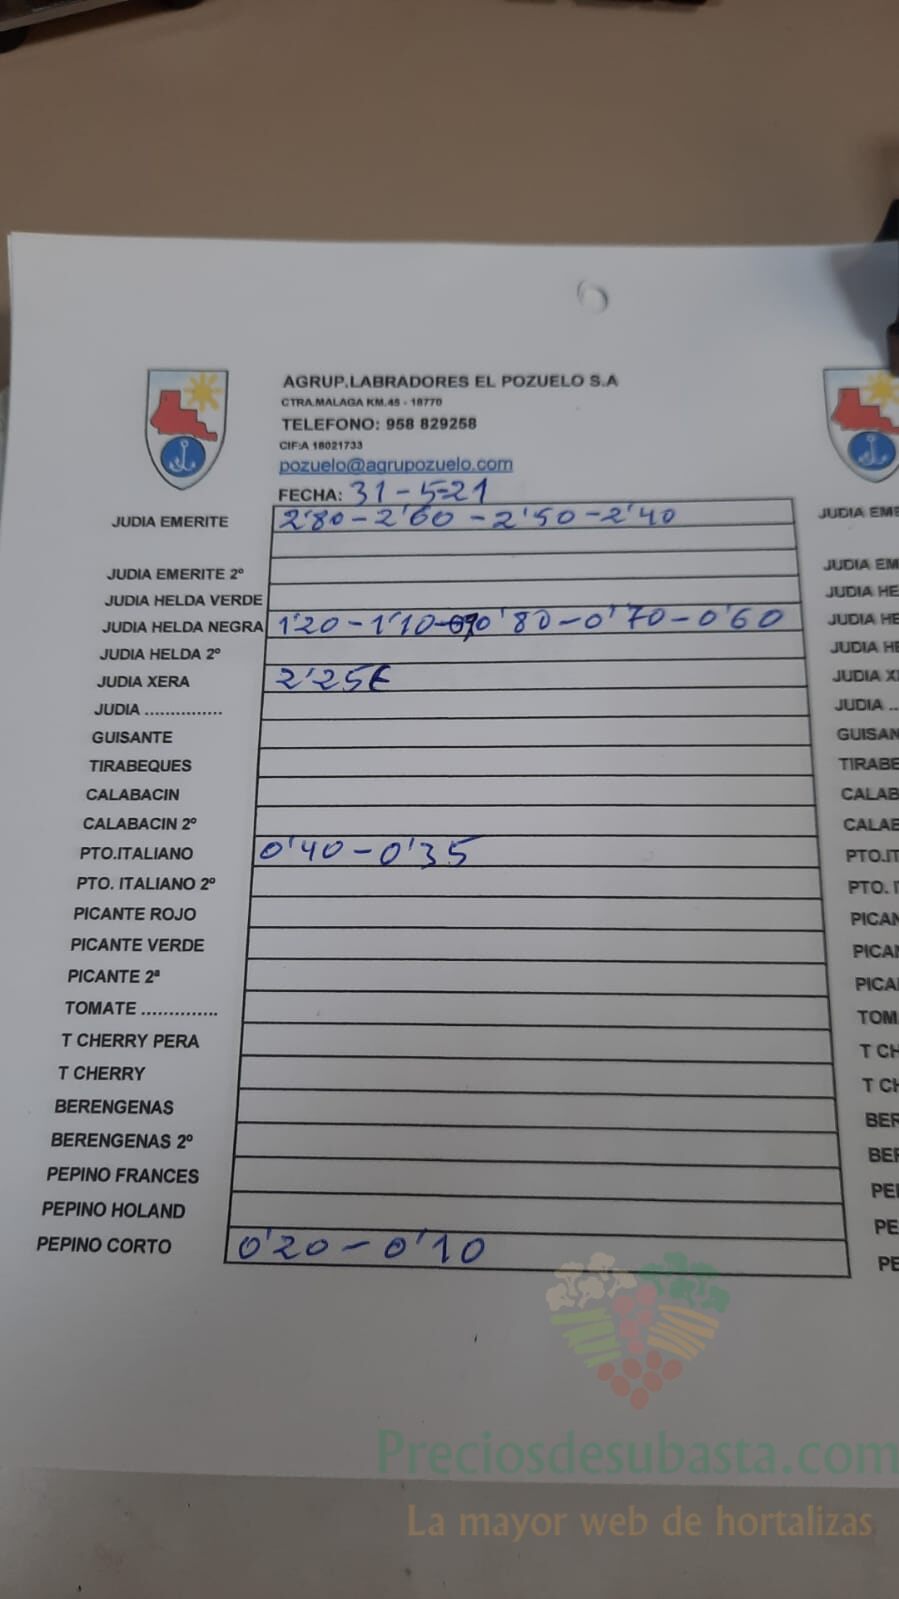 AGRUP.LABRADORES EL POZUELO S.A
CTRA.MALAGA KM.45 - 18770
TELEFONO: 958 829258
CIF:A 18021733
pozuelo@agrupozuelo.com
FECHA: 31-5-21
JUDIA EMERITE 2'80-2'60-2'50-2'40
JUDIA EMERITE 2º
JUDIA HELDA VERDE
JUDIA HELDA NEGRA 1'20-1'10-0'80-0'70-0'60
JUDIA HELDA 2º
JUDIA XERA 2'25€
JUDIA ...............
GUISANTE
TIRABEQUES
CALABACIN
CALABACIN 2º
PTO.ITALIANO 0'40-0'35
PTO. ITALIANO 2º
PICANTE ROJO
PICANTE VERDE
PICANTE 2ª
TOMATE ..............
T CHERRY PERA
T CHERRY
BERENGENAS
BERENGENAS 2º
PEPINO FRANCES
PEPINO HOLAND
PEPINO CORTO 0'20-0'10
JUDIA EME
JUDIA EM
JUDIA HE
JUDIA HE
JUDIA HE
JUDIA X
JUDIA ..
GUISAN
TIRABE
CALAB
CALAB
PTO.IT
PTO. I
PICAN
PICAN
PICA
TOM
T CH
T CH
BER
BE
PE
PE
PE
Preciosdesubasta.com
La mayor web de hortalizas